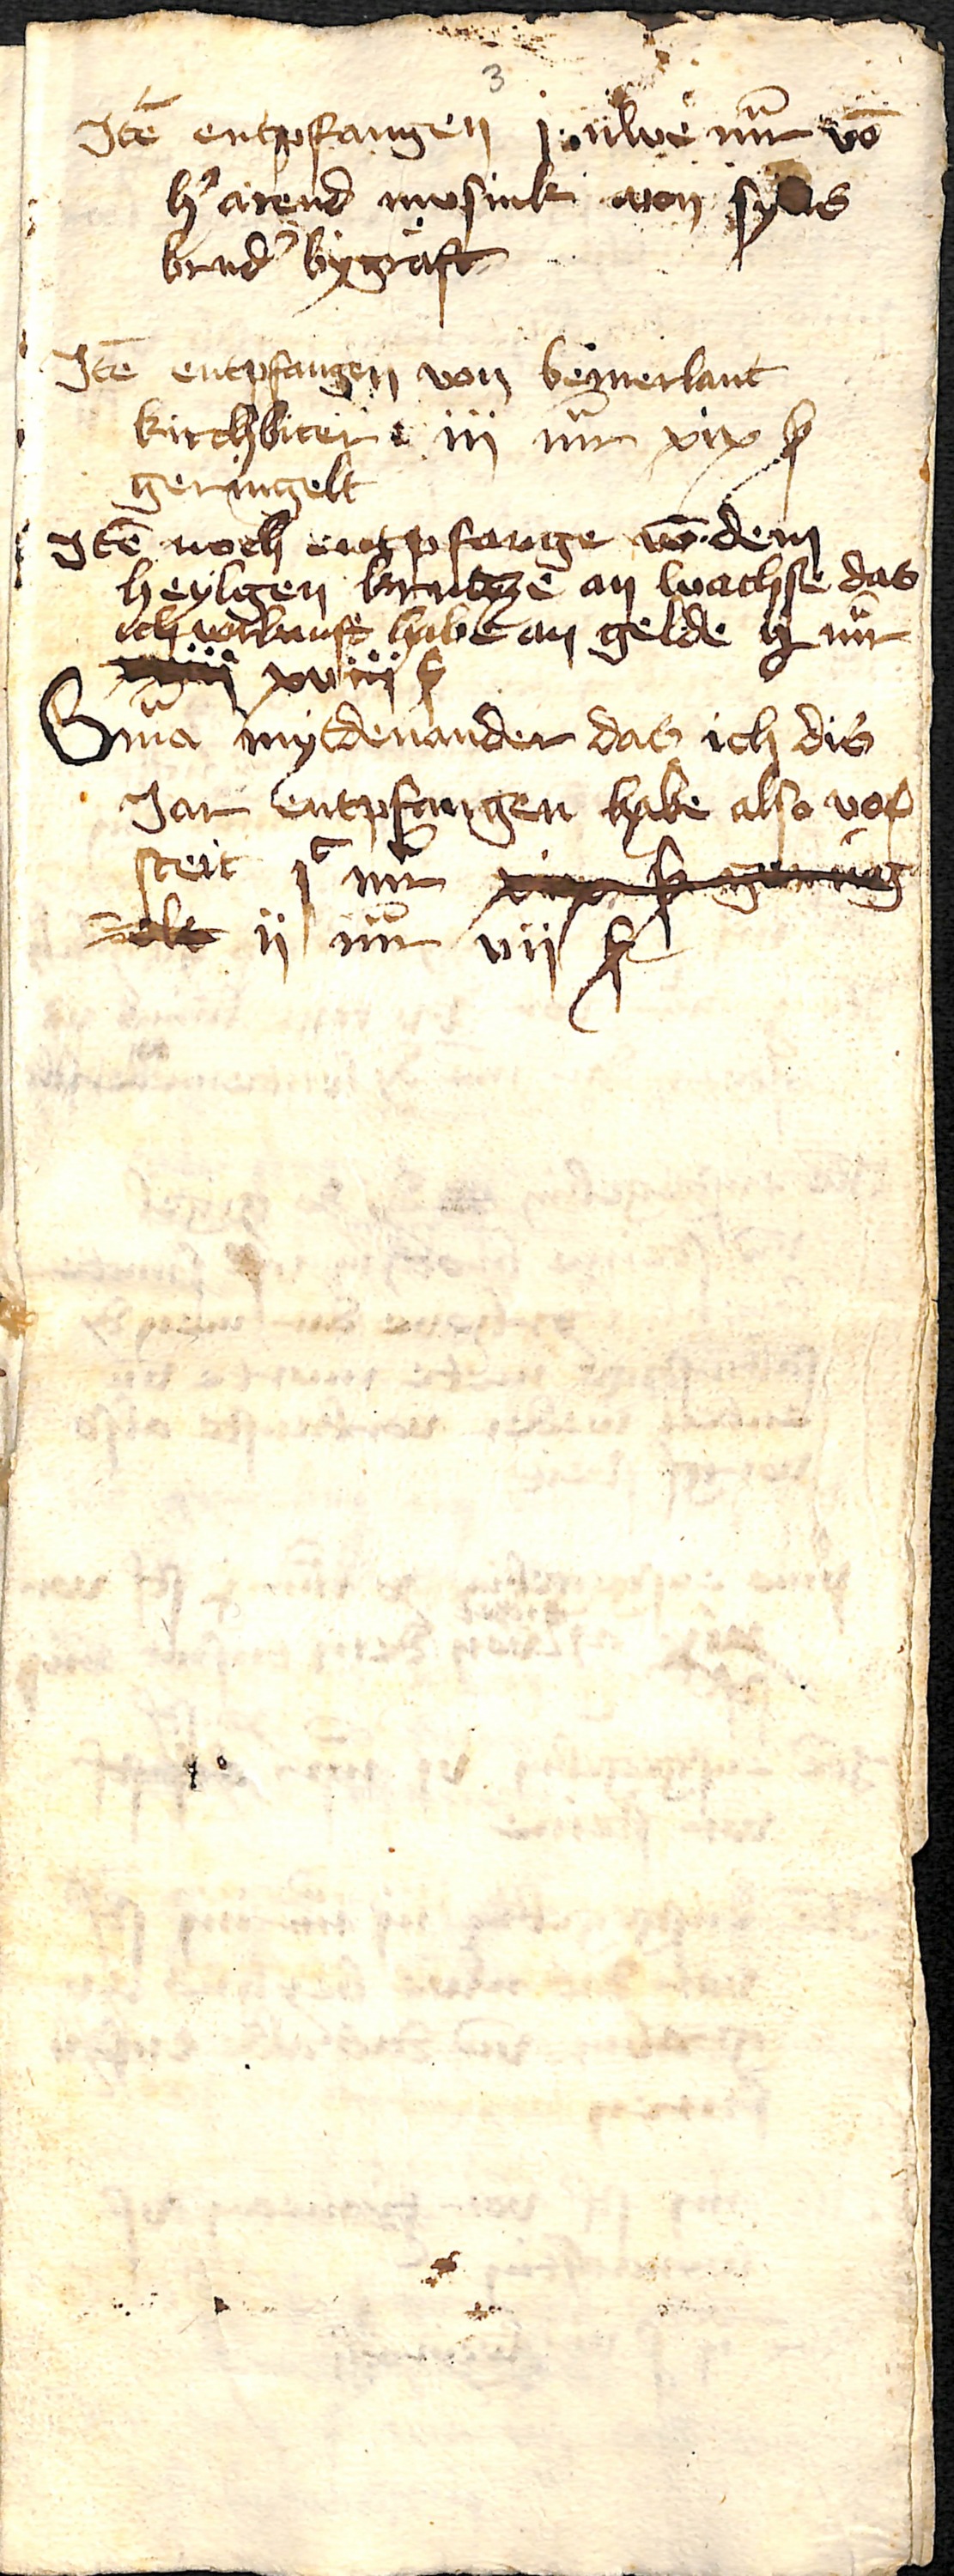 3
Itē entpfangen j nlwe mr vō
h' arend musink von syns
brud' bygraft
Itē entpfangen von bemerlant
kirchbiter iij mr xix ß
geringelt
Itē noch entpfange vō dem
heyligen krutze an wachse das
ich vorkauft habe an gelde ij mr
xviij ß
Sūma mytdenander das ich dis
Jar entpfangen habe also vor
steit jᶜ mr xix ß gering
elt ij mr vij ß